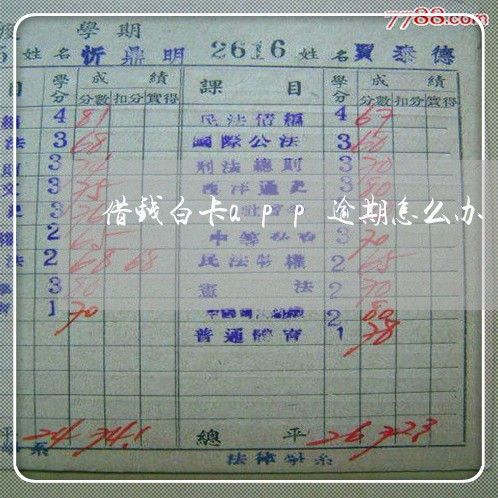 7788.com
學期
姓名 忻鼎明 2616 姓名 賈泰德
目 學分 成績 課目 學分 成績
分數 扣分 實得 分數 扣分 實得
4 81 民法債編 4 67
法 3 68 國際公法 3 60
3 刑法總則 3 70
3 75 西洋通史 3 80
借钱白卡app逾期怎么办
2 65 3 70
法 2 68 68 民法物權 2 65
3 80 憲法 2 70
1 70 2 80
普通體育 1 78
平 24 74.1 總平 26 72.3
系 法律學系